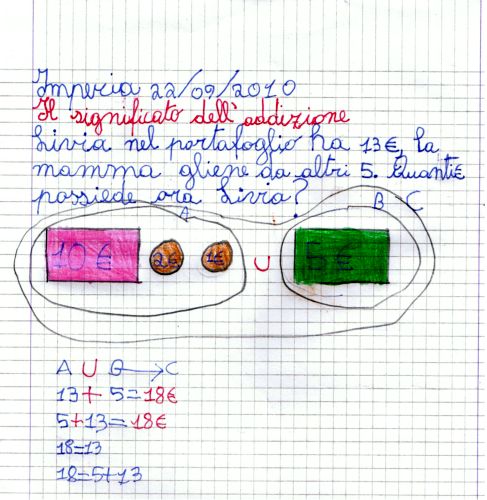 Imperia 22/09/2010
Il significato dell'addizione
Livia nel portafoglio ha 13€, la
mamma gliene da altri 5. Quanti€
possiede ora Livia?
A
B C
10€ 2€ 1€ U 5€
A U B → C
13+ 5=18€
5+13=18€
18=13
18=5+13